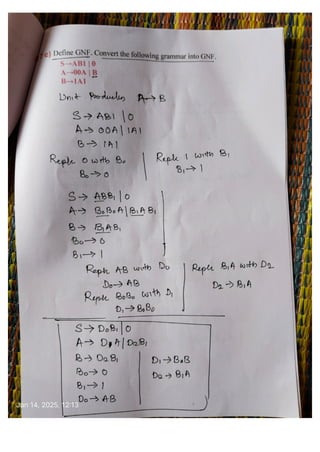 c) Define GNF. Convert the following grammar into GNF.
S→AB1 | 0
A→00A | B
B→1A1
Unit Productes A→B
S → AB1 | 0
A → 00A | 1A1
B → 1A1
Reple 0 with B₀ | Reple 1 with B₁
B₀ → 0 B₁ → 1
S → ABB₁ | 0
A → B₀B₀A | B₁A B₁
B → B₁AB₁
B₀ → 0
B₁ → 1
Reple AB with D₀ | Reple B₁A with D₂
D₀ → AB D₂ → B₁A
Reple B₀B₀ with D₁
D₁ → B₀B₀
S → D₀B₁ | 0
A → D₁A | D₂B₁
B → D₂B₁ D₁ → B₀B
B₀ → 0 D₂ → B₁A
B₁ → 1
D₀ → AB
Jan 14, 2025, 12:13